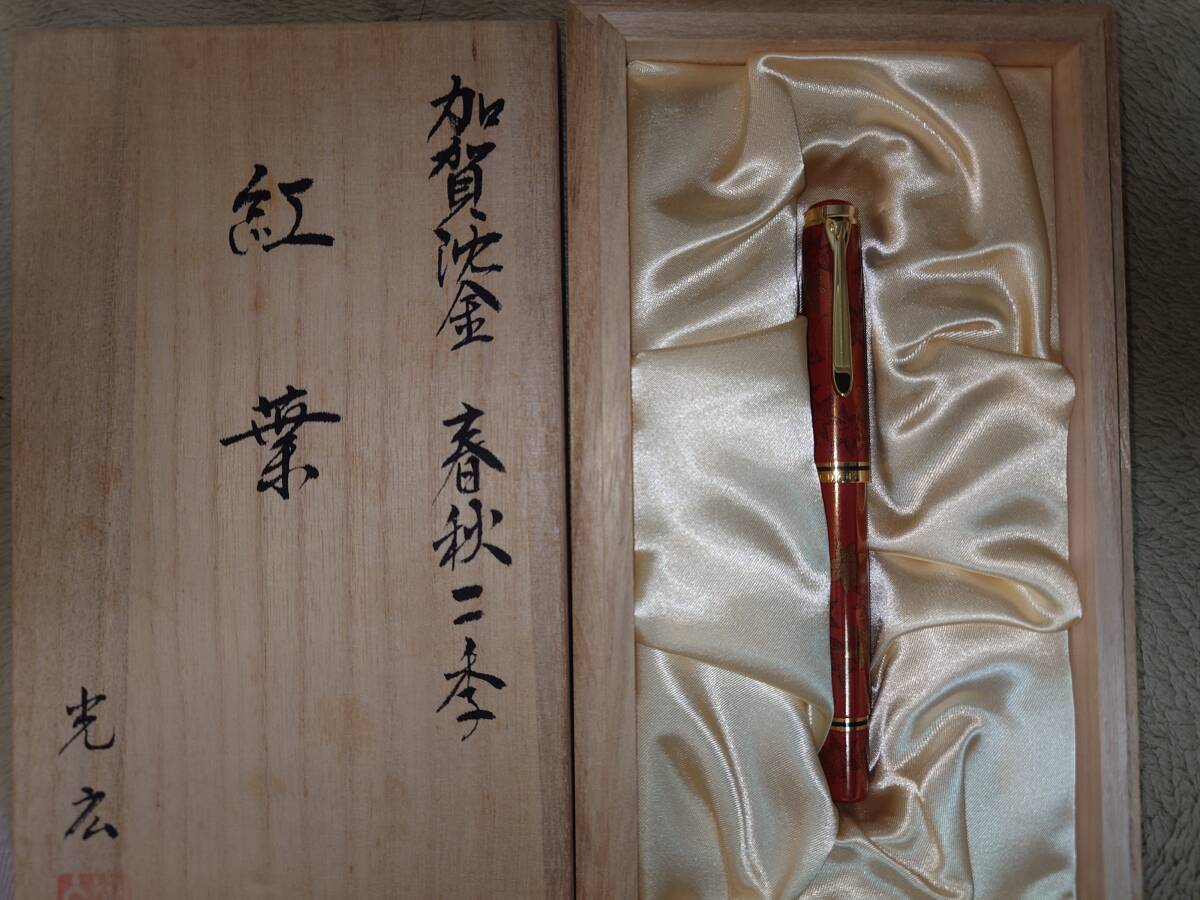 加賀沈金 春秋二季
紅葉
光広